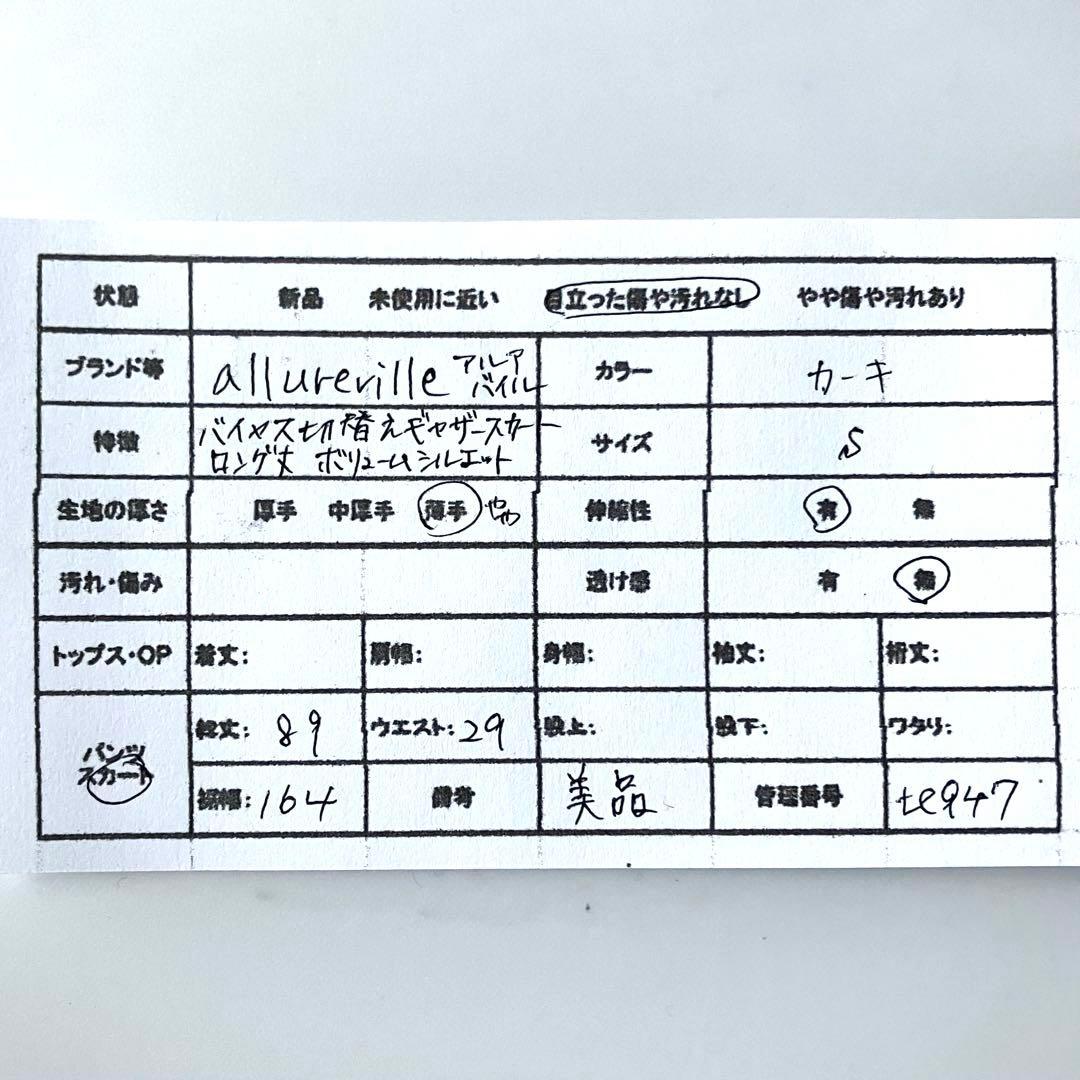 状態 新品 未使用に近い 目立った傷や汚れなし やや傷や汚れあり
ブランド等 allureville アルア バイル カラー カーキ
特徴 バイヤス切替えギャザースカート サイズ S
ロング丈 ボリュームシルエット
生地の厚さ 厚手 中厚手 薄手 やや 伸縮性 有 無
汚れ・傷み 透け感 有 無
トップス・OP 着丈: 肩幅: 身幅: 袖丈: 裄丈:
パンツ 総丈: 89 ウエスト: 29 股上: 股下: ワタリ:
スカート 裾幅: 164 備考 美品 管理番号 te947